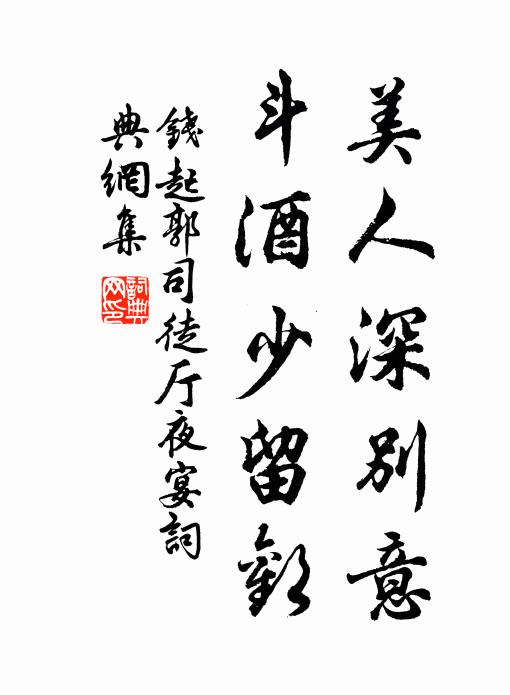 美人深別意
斗酒少留歡
錢起郭司徒厅夜宴詞
典網集
詞典
网印